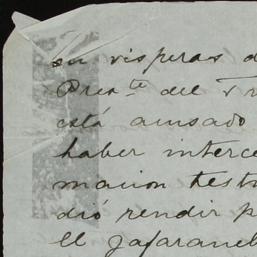 su visperas d
Presᵗᵉ del Tr
está acusado
haber interce
macion testi
dió rendir p
el Jafaranel